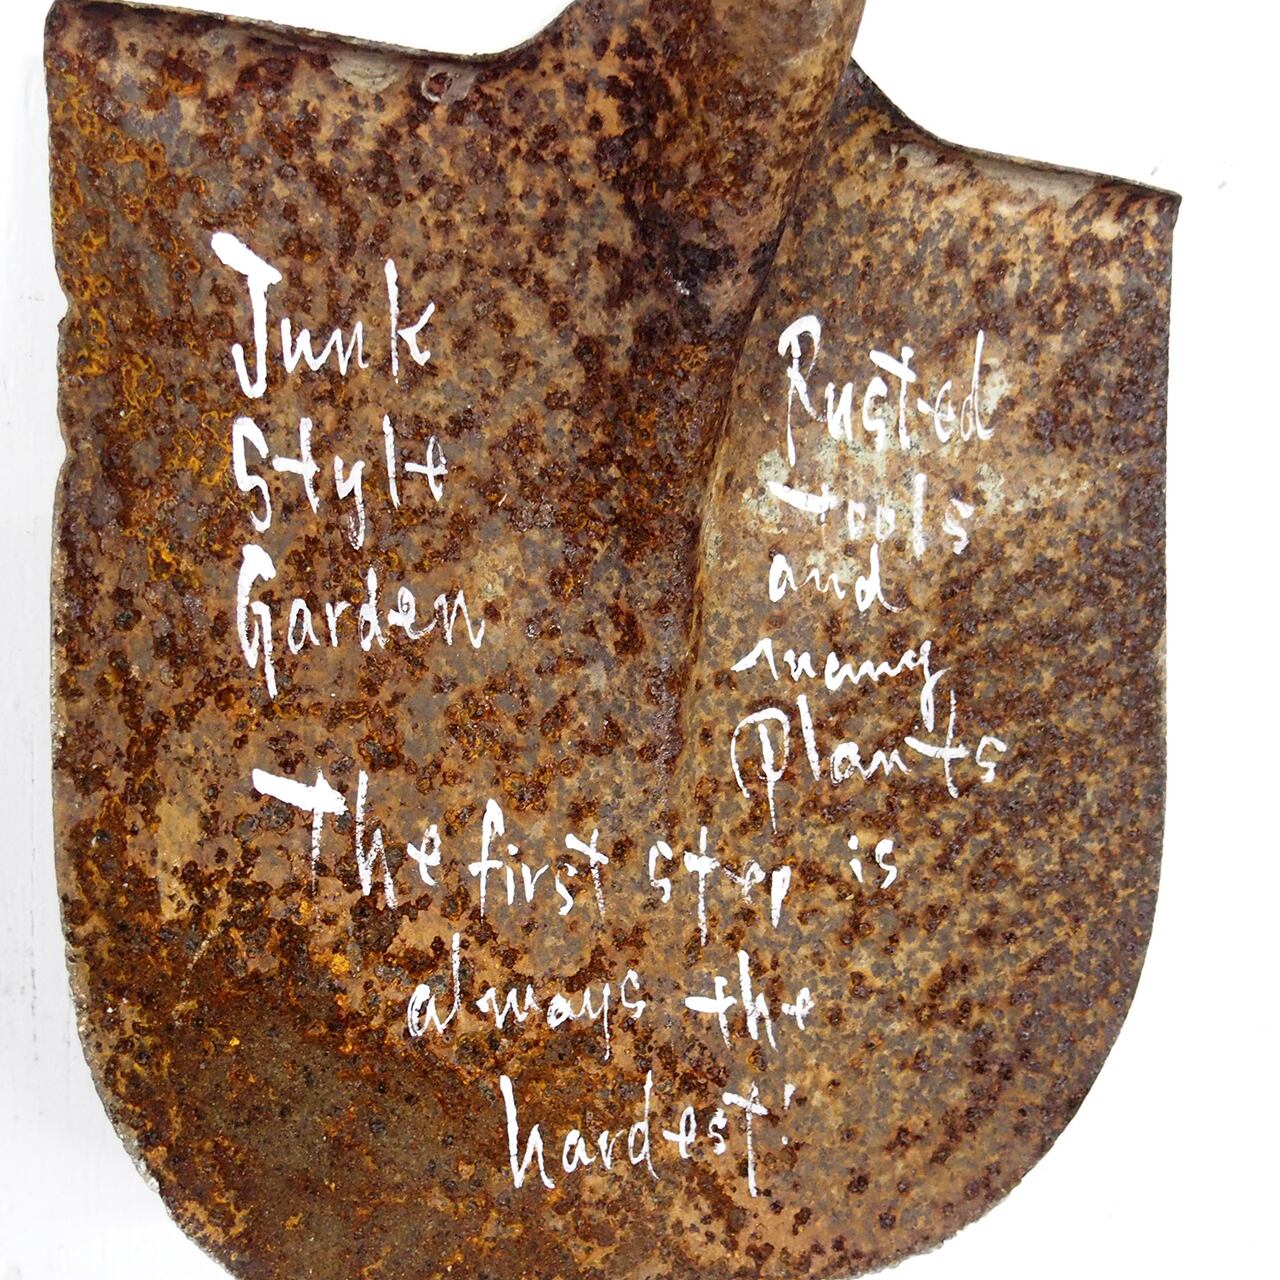 Junk
Style
Garden
Rusted
tools
and
many
Plants
The first step is
always the
hardest!